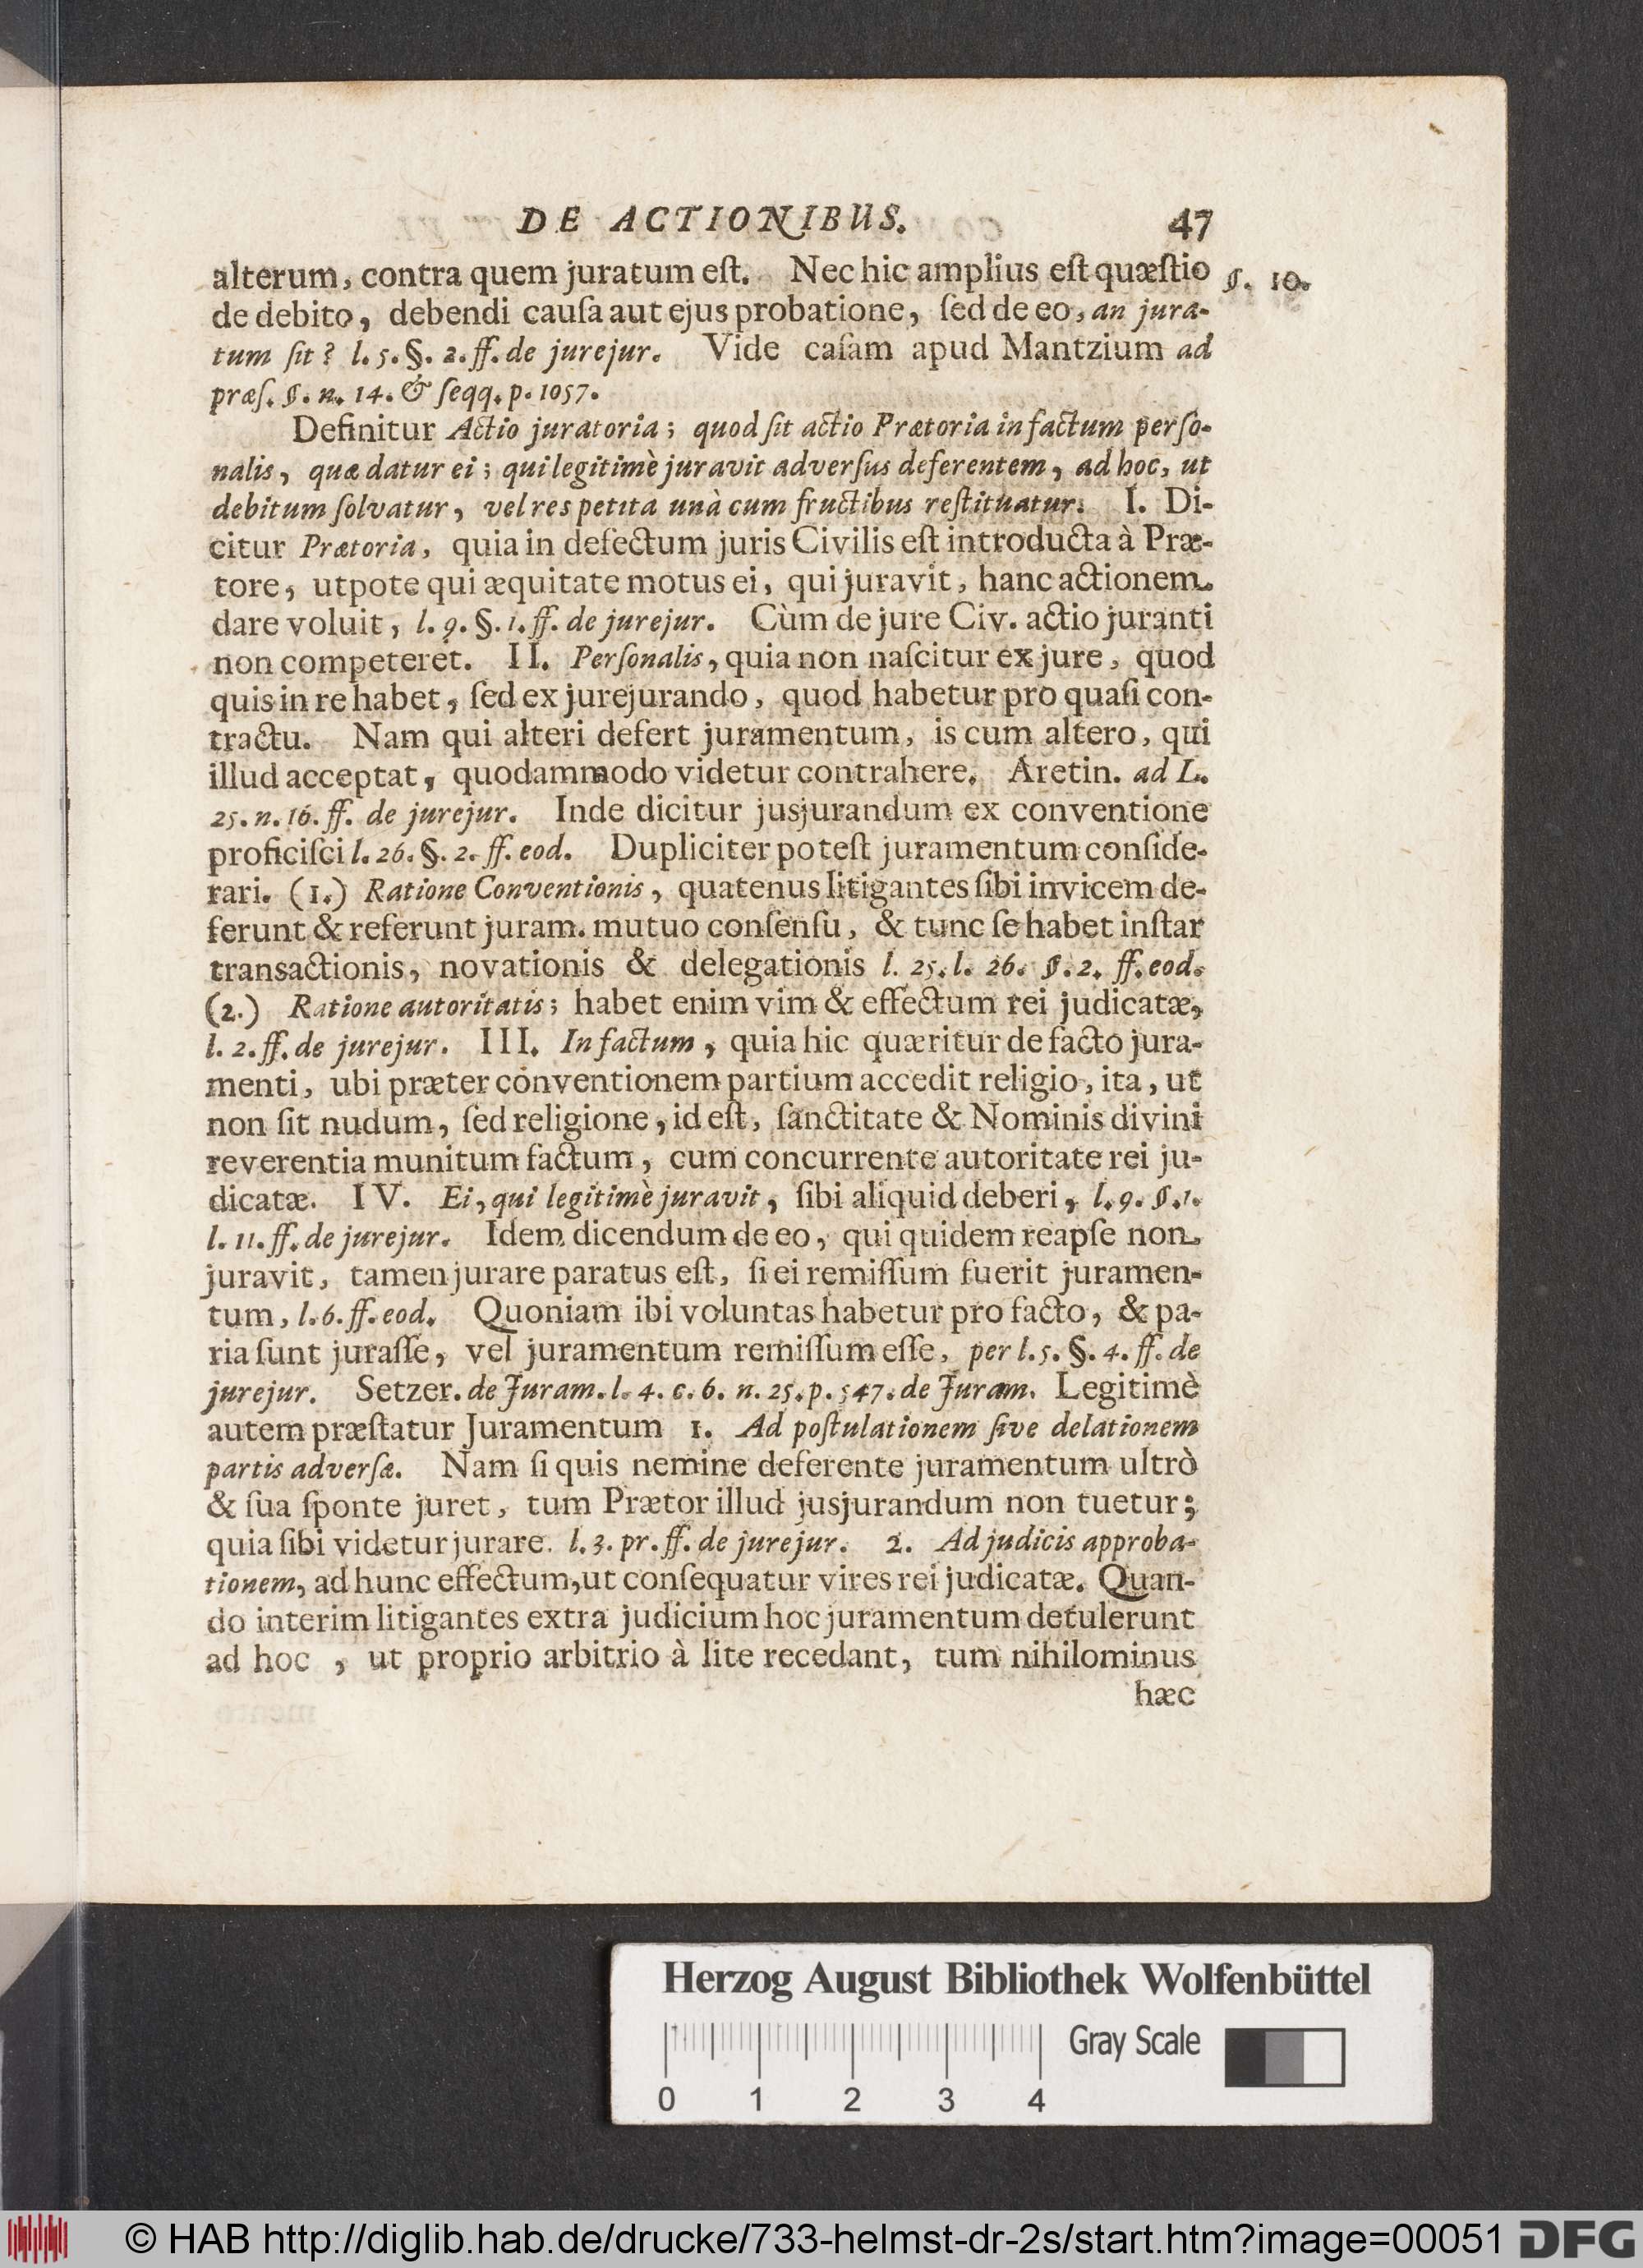 DE ACTIONIBUS. 47
alterum, contra quem juratum eſt. Nec hic amplius eſt quæſtio §. 10.
de debito, debendi cauſa aut ejus probatione, ſed de eo, an jura-
tum ſit? l. 5. §. 2. ff. de jurejur. Vide caſam apud Mantzium ad
præſ. §. n. 14. & ſeqq. p. 1057.
Definitur Actio juratoria; quod ſit actio Prætoria in factum perſo-
nalis, quæ datur ei; qui legitimè juravit adverſus deferentem, ad hoc, ut
debitum ſolvatur, vel res petita unà cum fructibus reſtituatur. I. Di-
citur Prætoria, quia in defectum juris Civilis eſt introducta à Præ-
tore, utpote qui æquitate motus ei, qui juravit, hanc actionem
dare voluit, l. 9. §. 1. ff. de jurejur. Cùm de jure Civ. actio juranti
non competeret. II. Perſonalis, quia non naſcitur ex jure, quod
quis in re habet, ſed ex jurejurando, quod habetur pro quaſi con-
tractu. Nam qui alteri defert juramentum, is cum altero, qui
illud acceptat, quodammodo videtur contrahere. Aretin. ad L.
25. n. 16. ff. de jurejur. Inde dicitur jusjurandum ex conventione
proficiſci l. 26. §. 2. ff. eod. Dupliciter poteſt juramentum conſide-
rari. (1.) Ratione Conventionis, quatenus litigantes ſibi invicem de-
ferunt & referunt juram. mutuo conſenſu, & tunc ſe habet inſtar
transactionis, novationis & delegationis l. 25. l. 26. §. 2. ff. eod.
(2.) Ratione autoritatis; habet enim vim & effectum rei judicatæ,
l. 2. ff. de jurejur. III. In factum, quia hic quæritur de facto jura-
menti, ubi præter conventionem partium accedit religio, ita, ut
non ſit nudum, ſed religione, id eſt, ſanctitate & Nominis divini
reverentia munitum factum, cum concurrente autoritate rei ju-
dicatæ. IV. Ei, qui legitimè juravit, ſibi aliquid deberi, l. 9. §. 1.
l. 11. ff. de jurejur. Idem dicendum de eo, qui quidem reapſe non
juravit, tamen jurare paratus eſt, ſi ei remiſſum fuerit juramen-
tum, l. 6. ff. eod. Quoniam ibi voluntas habetur pro facto, & pa-
ria ſunt juraſſe, vel juramentum remiſſum eſſe, per l. 5. §. 4. ff. de
jurejur. Setzer. de Juram. l. 4. c. 6. n. 25. p. 547. de Juram. Legitimè
autem præſtatur Juramentum 1. Ad poſtulationem ſive delationem
partis adverſæ. Nam ſi quis nemine deferente juramentum ultrò
& ſua ſponte juret, tum Prætor illud jusjurandum non tuetur;
quia ſibi videtur jurare. l. 3. pr. ff. de jurejur. 2. Ad judicis approba-
tionem, ad hunc effectum, ut conſequatur vires rei judicatæ. Quan-
do interim litigantes extra judicium hoc juramentum detulerunt
ad hoc, ut proprio arbitrio à lite recedant, tum nihilominus
hæc
Herzog August Bibliothek Wolfenbüttel
Gray Scale
0 1 2 3 4
© HAB http://diglib.hab.de/drucke/733-helmst-dr-2s/start.htm?image=00051 DFG